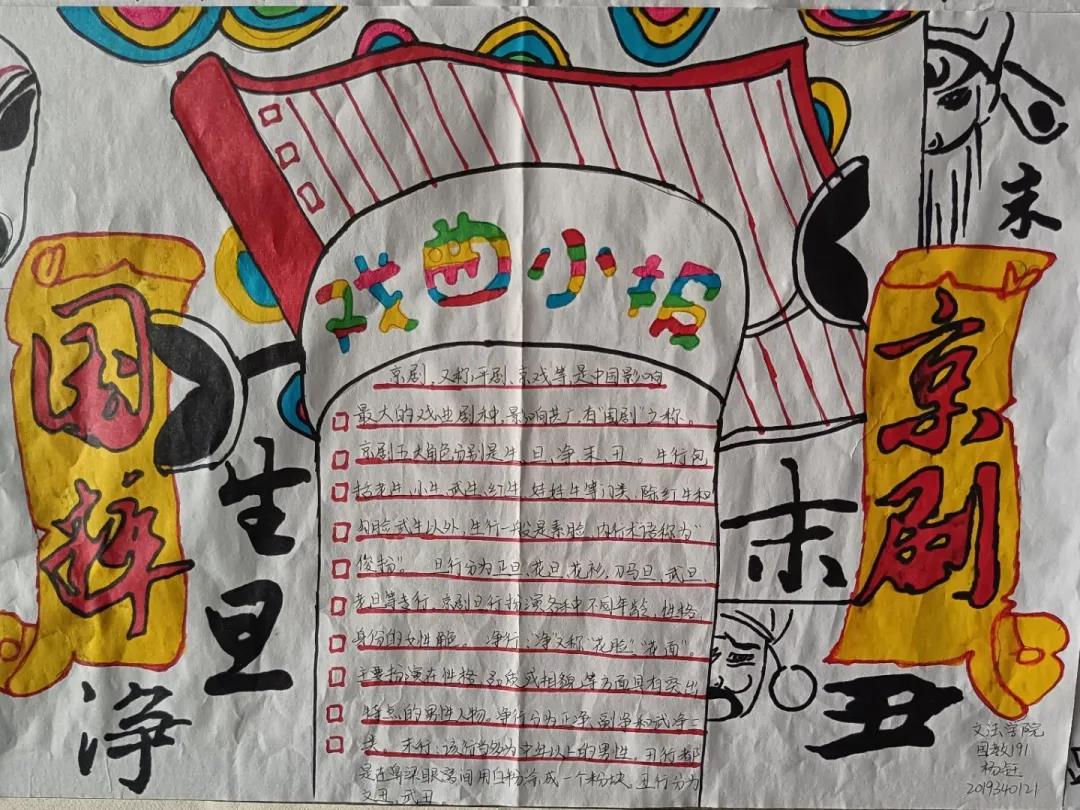 戏曲小报
国粹
京剧
生
旦
净
末
末
丑
京剧，又称平剧、京戏等，是中国影响
最大的戏曲剧种，影响甚广，有“国剧”之称。
京剧五大角色分别是生、旦、净、末、丑。生行包
括老生、小生、武生、红生、娃娃生等门类，除红生和
勾脸武生以外，生行一般是素脸，内行术语称为“
俊扮”。旦行分为正旦、花旦、花衫、刀马旦、武旦、
老旦等专行，京剧旦行扮演各种不同年龄、性格、
身份的女性角色。净行：净“又称“花脸”、“花面”。
主要扮演在性格、品质或相貌等方面具有突出
特点的男性人物。净行分为正净、副净和武净三
类。末行：该行当多为中年以上的男性。丑行都
是在鼻梁眼窝间用白粉涂成一个粉块，丑行分为
文丑、武丑。
文法学院
国教191
杨钰
2019340121